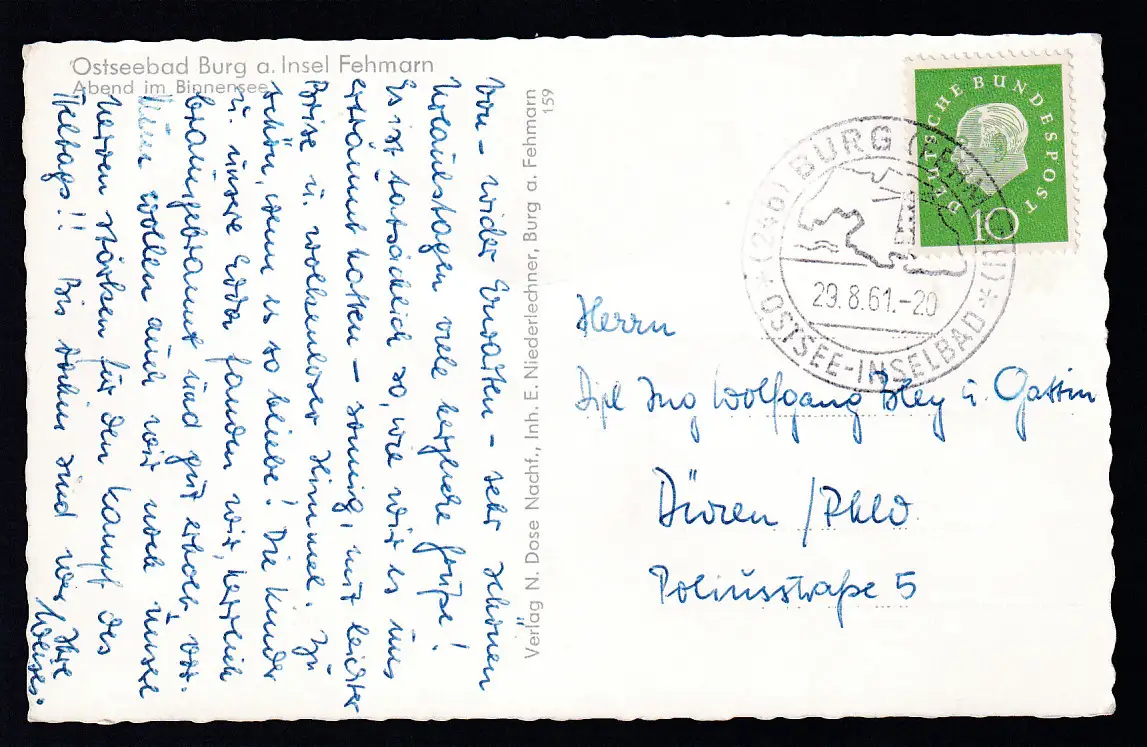 Ostseebad Burg a. Insel Fehmarn
Abend im Binnensee
Von – wider Erwarten – sehr schönen
Urlaubstagen viele herzliche Grüße!
Es ist tatsächlich so, wie wir es uns
erträumt hatten – sonnig, mit leichter
Brise u. wolkenloser Himmel. Zu
schön, wenn es so bliebe! Die Kinder
u. unsere Edda fanden wir herrlich
braungebrannt und gut erholt vor.
Nun wollen auch wir noch unsere
Nerven stärken für den Kampf des
Alltags!! Bis dahin sind wir Ihre
Verlag N. Dose Nachf., Inh. E. Niederlechner, Burg a. Fehmarn
159
DEUTSCHE BUNDESPOST
10
(24b) BURG
29.8.61.-20
* OSTSEE-INSELBAD *
Herrn
Dipl Ing Wolfgang Bley u. Gattin
Düren / Rhld
Poliusstraße 5